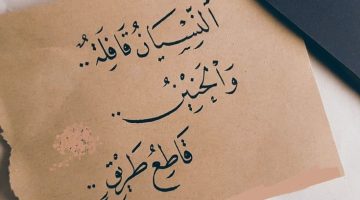 اَلنِّسْيَانُ قَافِلَةٌ ..
وَالْحَنِيْنُ ..
قَاطِعُ طَرِيْقٍ ..